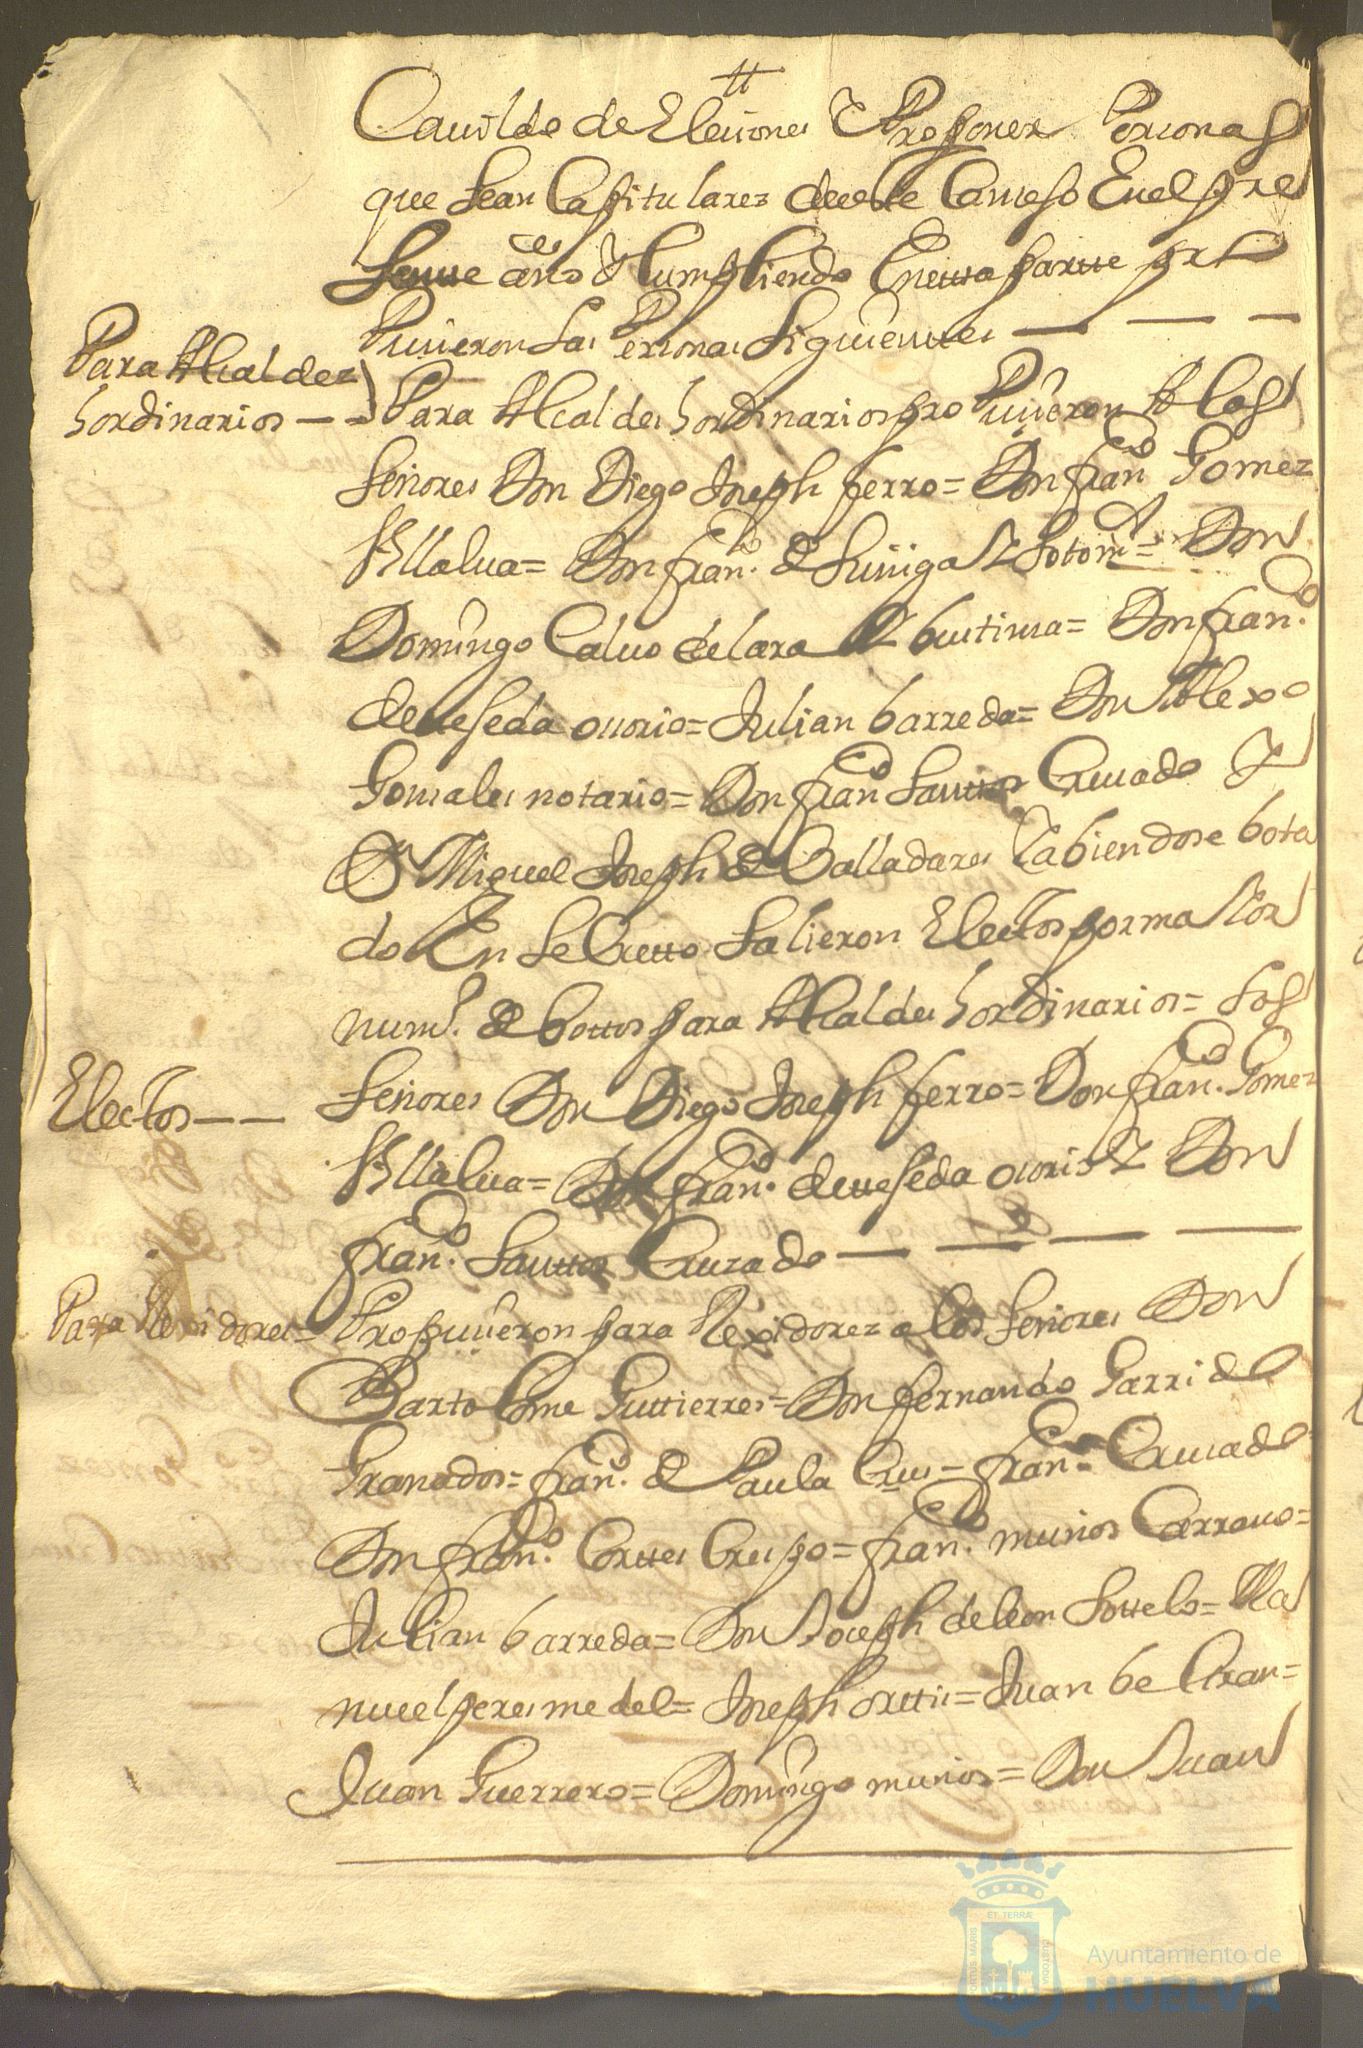 Cauildo de Elecciones Y Proponer Personas
que sean Capitulares deeste Conceso Enel pre
sentte año Y Cumpliendo En etta partte pro
Pusieron las Personas siguienttes — — —
Para Alcaldez
hordinarios — —
Para Alcaldes hordinarios pro Pusieron A los
señores Don Diego Joseph ferro = Don franco Gomez
Villalua = Don franco de Suñiga Y Sotomr = Don
Domingo Caluo de lara Y buitima = Don franco
deueseda osorio = Julian barreda = Don Alexo
Gonsales notario = Don franco Santtos Crusado Y
Dn Miguel Joseph de Valladares Y abiendose bota
do En seCretto salieron Electos por maYor
numo de bottos para Alcaldes hordinarios = los
Electos — —
señores Don Diego Joseph ferro = Don franco Gomez
Villalua = Don franco deueseda osorio Y Don
franco Santtos Cruzado — — — —
Para Rexidores =
Propusieron para Rexidorez a los señores Don
Bartolome Guttierres = Don fernando Garrido
Granados = franco de Paula Crus = franco Crusado
Don franco Corttes Crespo = franco muños Carrasco =
Julian barreda = Don Joseph de leon Sottelo = Ma
nuel peres medel = Joseph orttis = Juan beltran =
Juan Guerrero = Domingo muños = Don Juan
ET TERRÆ
PORTUS MARIS
CUSTODIA
Ayuntamiento de
HUELVA